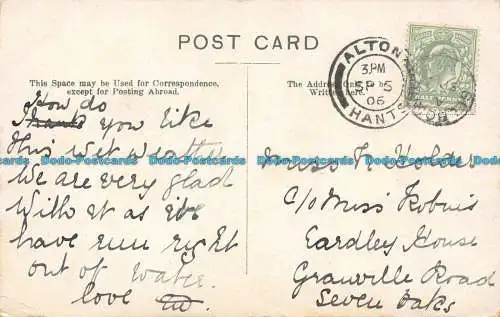 POST CARD
This Space may be Used for Correspondence,
except for Posting Abroad.
The Address Only to be
Written here.
ALTON
3 PM
SP 5
06
HANTS
How do
Thanks you like
this wet weather
we are very glad
with it as we
have run right
out of water.
love
Miss N Holder
c/o Miss
Eardley House
Granville Road
Seven Oaks
Dodo-Postcards Dodo-Postcards Dodo-Postcards Dodo-Postcards Dodo-Postcards